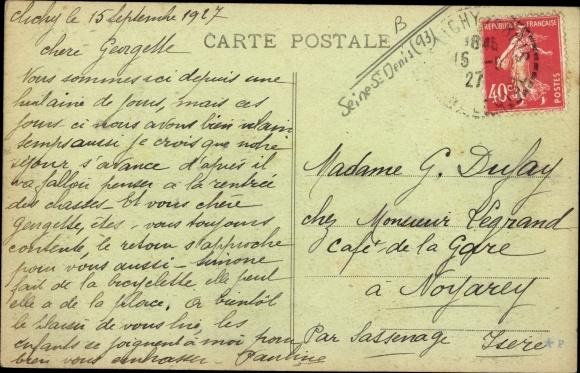 Clichy le 15 Septembre 1927
chère Georgette
CARTE POSTALE
B
Seine St Denis (93)
Vous sommes ici depuis une
huitaine de jours, mais ces
jours ci nous avons bien vilain
temps aussi je crois que notre
séjour s'avance d'après il
va falloir penser à la rentrée
des classes Et vous chère
Georgette, êtes-vous toujours
contente, le retour s'approche
pour vous aussi - Simone
fait de la bicyclette, elle peut
elle a de la place, à bientôt
le plaisir de vous lire, les
enfants se joignent à moi pour
bien vous embrasser Pauline
CLICHY
1845
15
27
REPUBLIQUE FRANÇAISE
40c
POSTES
Madame G. Dufay
chez Monsieur Legrand
Café de la Gare
à Noyarey
Par Sassenage Isere
* P